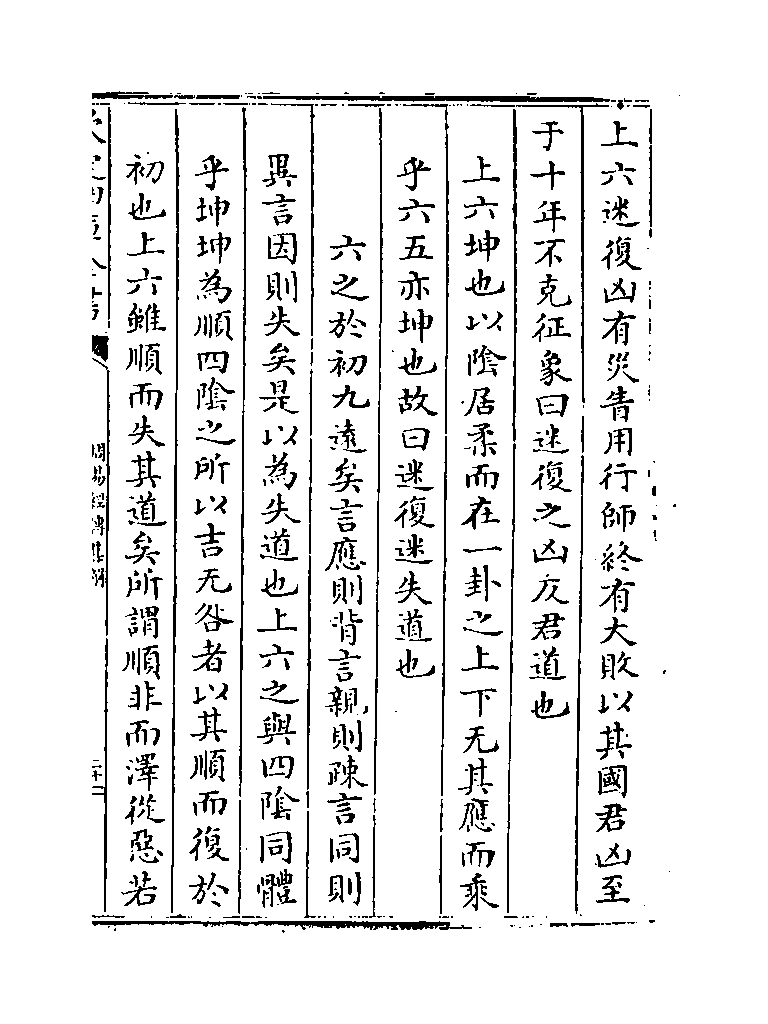 上六迷復凶有災眚用行師終有大敗以其國君凶至
于十年不克征象曰迷復之凶反君道也
上六坤也以陰居柔而在一卦之上下无其應而乘
乎六五亦坤也故曰迷復迷失道也
六之於初九遠矣言應則背言親則踈言同則
異言因則失矣是以為失道也上六之與四陰同體
乎坤坤為順四陰之所以吉无咎者以其順而復於
初也上六雖順而失其道矣所謂順非而澤從惡若
周易經傳集解